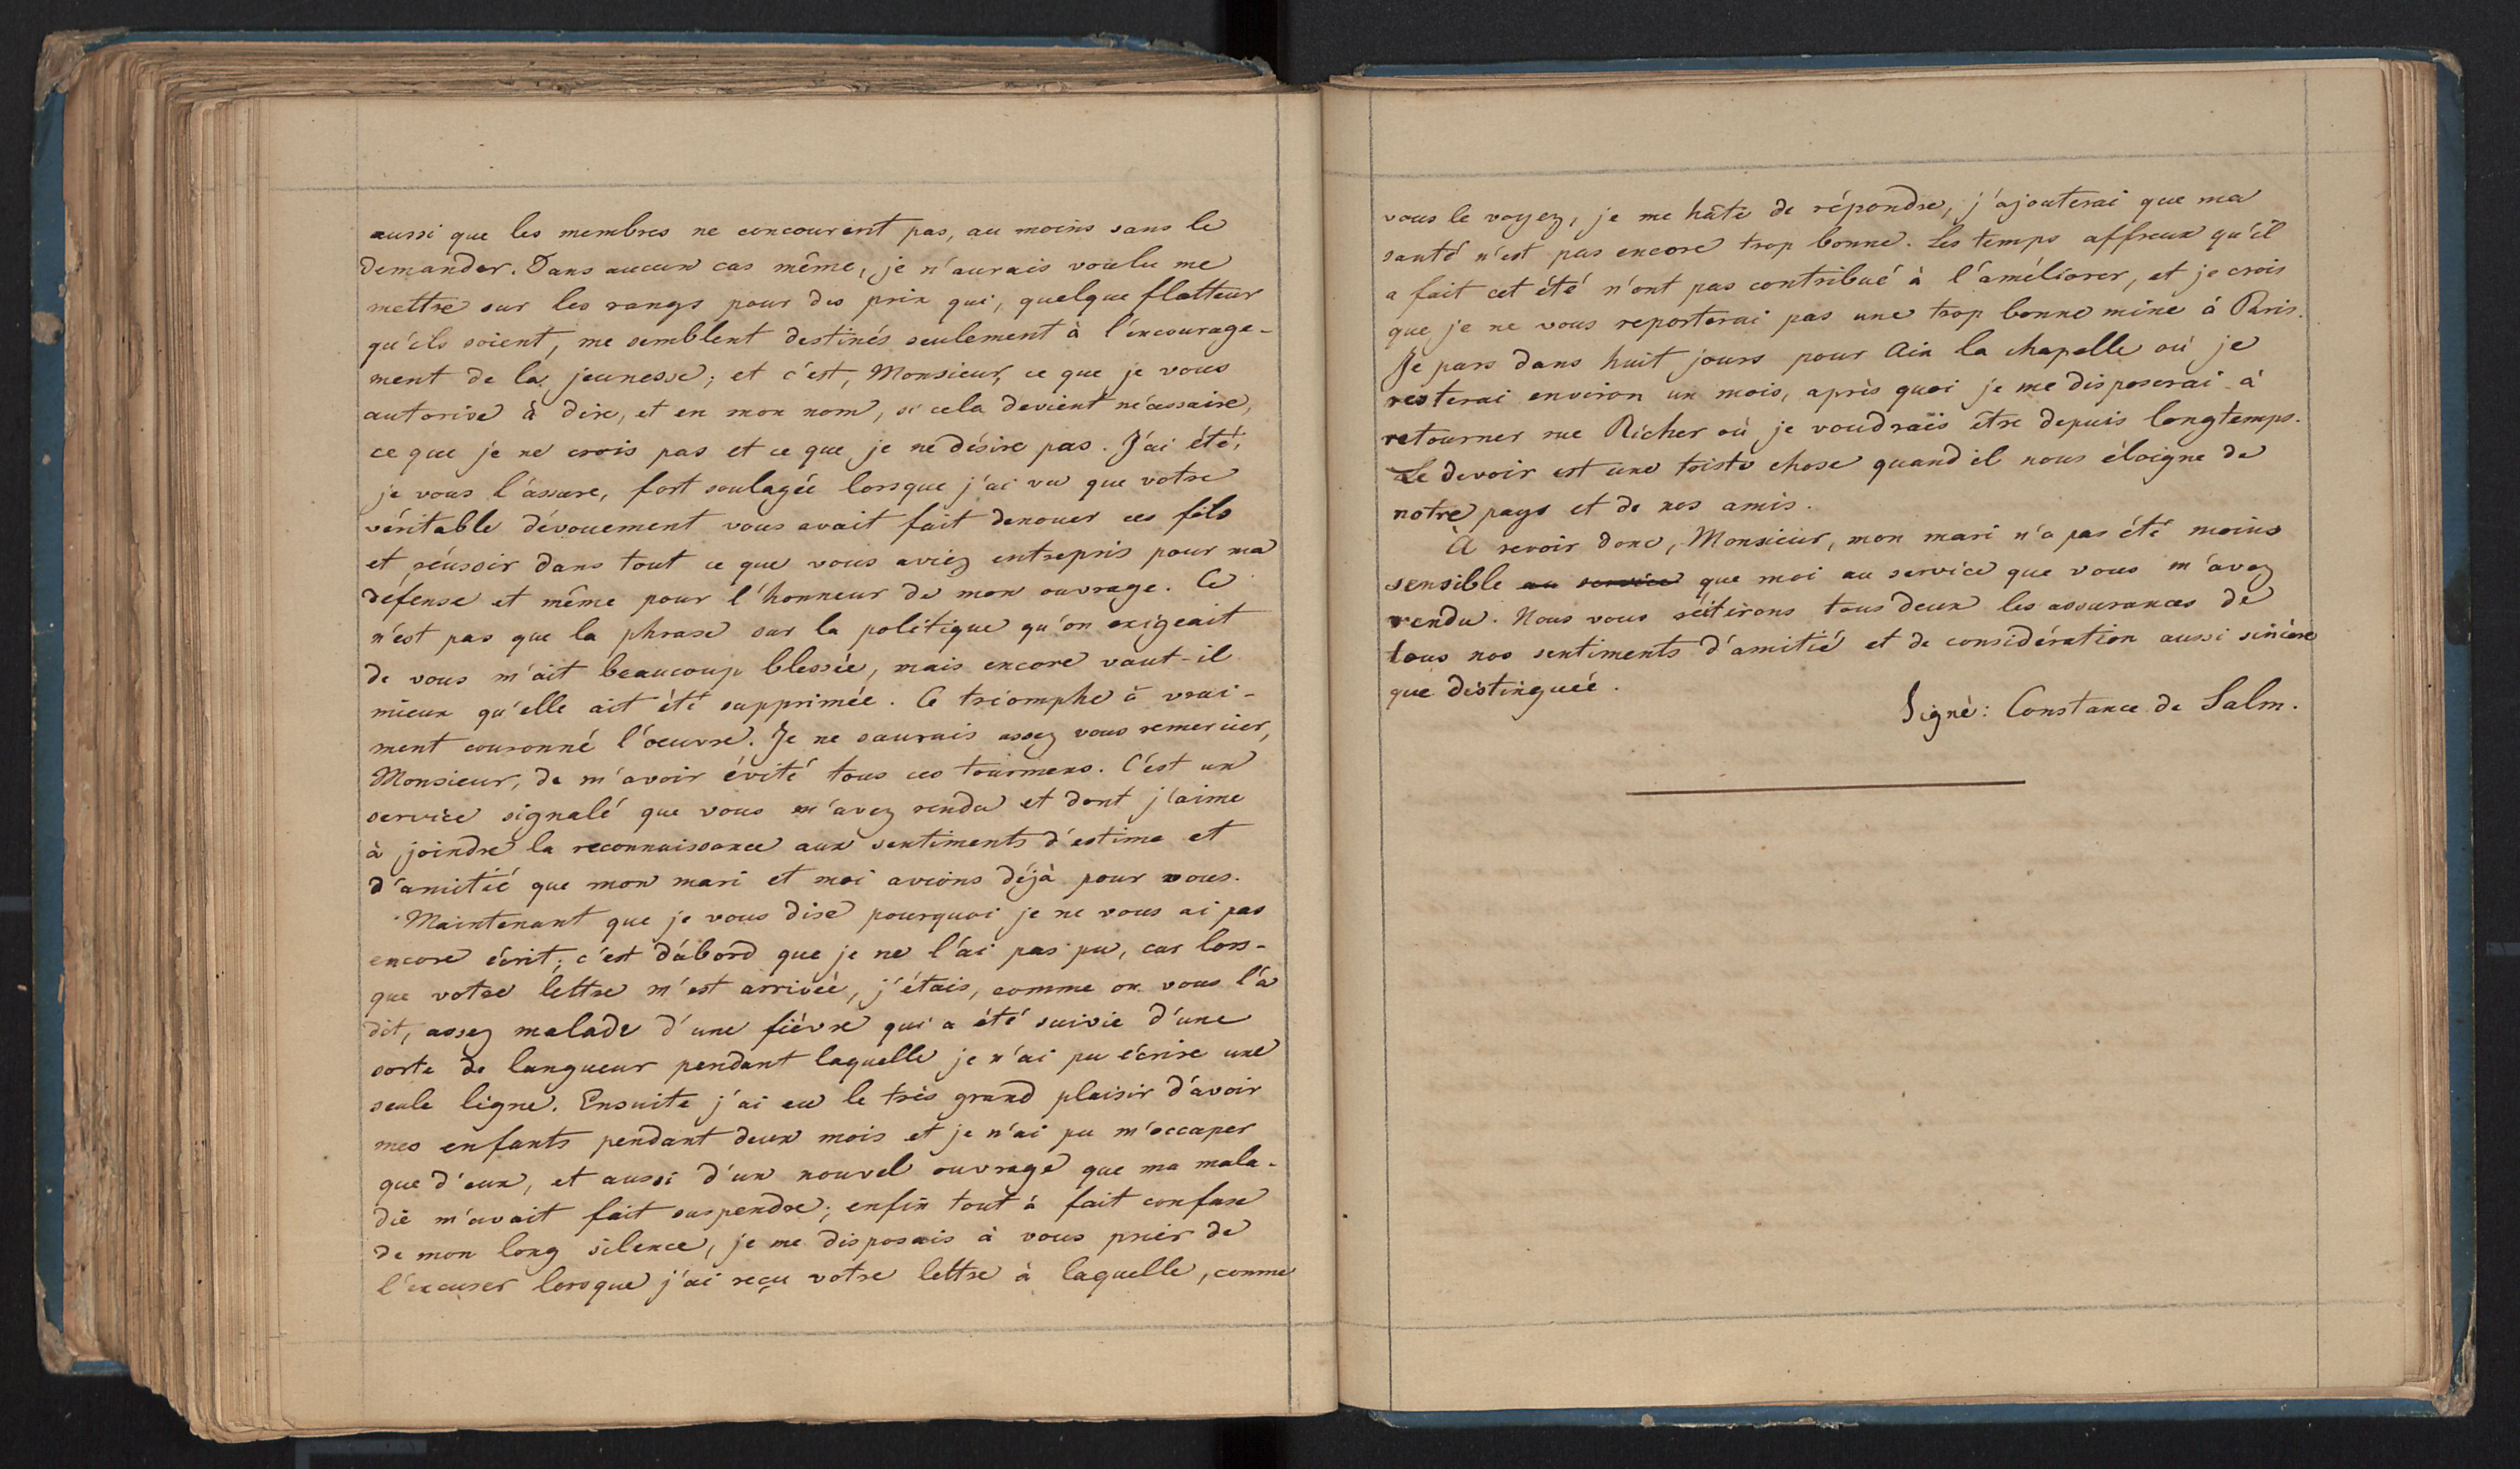 aussi que les membres ne concourent pas, au moins sans le
demander. Dans aucun cas même, je n'aurais voulu me
mettre sur les rangs pour des prix qui, quelque flatteur
qu'ils soient, me semblent destinés seulement à l'encourage-
ment de la jeunesse; et c'est, Monsieur, ce que je vous
autorise à dire, et en mon nom, si cela devient nécessaire,
ce que je ne crois pas et ce que je ne désire pas. J'ai été,
je vous l'assure, fort soulagée lorsque j'ai vu que votre
véritable dévouement vous avait fait denouer ces fils
et réussir dans tout ce que vous aviez entrepris pour ma
défense et même pour l'honneur de mon ouvrage. Ce
n'est pas que la phrase sur la politique qu'on exigeait
de vous m'ait beaucoup blessée, mais encore vaut-il
mieux qu'elle ait été supprimée. Ce triomphe à vrai-
ment couronné l'oeuvre. Je ne saurais assez vous remercier,
Monsieur, de m'avoir évité tous ces tourmens. C'est un
service signalé que vous m'avez rendu et dont j'aime
à joindre la reconnaissance aux sentiments d'estime et
d'amitié que mon mari et moi avions déjà pour vous.
Maintenant que je vous dise pourquoi je ne vous ai pas
encore écrit; c'est d'abord que je ne l'ai pas pu, car lors-
que votre lettre m'est arrivée, j'étais, comme on vous l'a
dit, assez malade d'une fièvre qui a été suivie d'une
sorte de langueur pendant laquelle je n'ai pu écrire une
seule ligne. Ensuite j'ai eu le très grand plaisir d'avoir
mes enfants pendant deux mois et je n'ai pu m'occuper
que d'eux, et aussi d'un nouvel ouvrage que ma mala-
die m'avait fait suspendre; enfin tout à fait confuse
de mon long silence, je me disposais à vous prier de
l'excuser lorsque j'ai reçu votre lettre à laquelle, comme
vous le voyez, je me hâte de répondre, j'ajouterai que ma
santé n'est pas encore trop bonne. Les temps affreux qu'il
a fait cet été n'ont pas contribué à l'améliorer, et je crois
que je ne vous reporterai pas une trop bonne mine à Paris.
Je pars dans huit jours pour Aix la chapelle où je
resterai environ un mois, après quoi je me disposerai à
retourner rue Richer où je voudrais être depuis longtemps.
Le devoir est une triste chose quand il nous éloigne de
notre pays et de nos amis.
À revoir donc, Monsieur, mon mari n'a pas été moins
sensible au service que moi au service que vous m'avez
rendu. Nous vous réitérons tous deux les assurances de
tous nos sentiments d'amitié et de considération aussi sincère
que distinguée.
Signé: Constance de Salm.